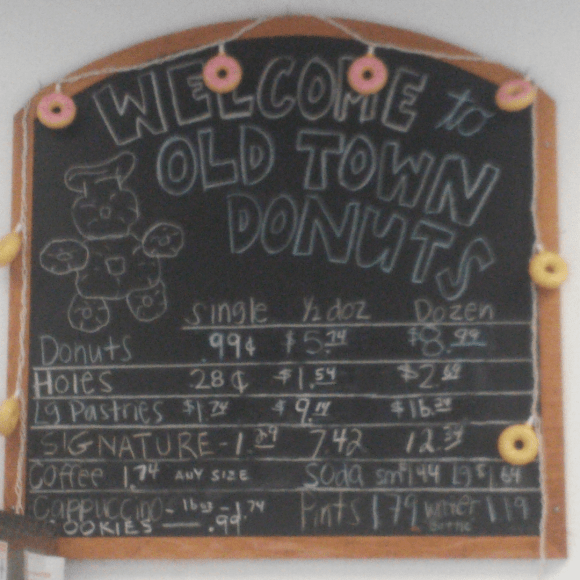 WELCOME to
OLD TOWN
DONUTS
Single ½ doz Dozen
Donuts .99¢ $5.74 $8.99
Holes 28¢ $1.54 $2.69
Lg Pastries $1.74 $9.14 $16.29
SIGNATURE - 1.39 7.42 12.34
Coffee 1.74 ANY SIZE Soda sm $1.44 lg $1.64
Cappuccino - - 1.74 Pints 1.79 water 1.19
COOKIES — .99